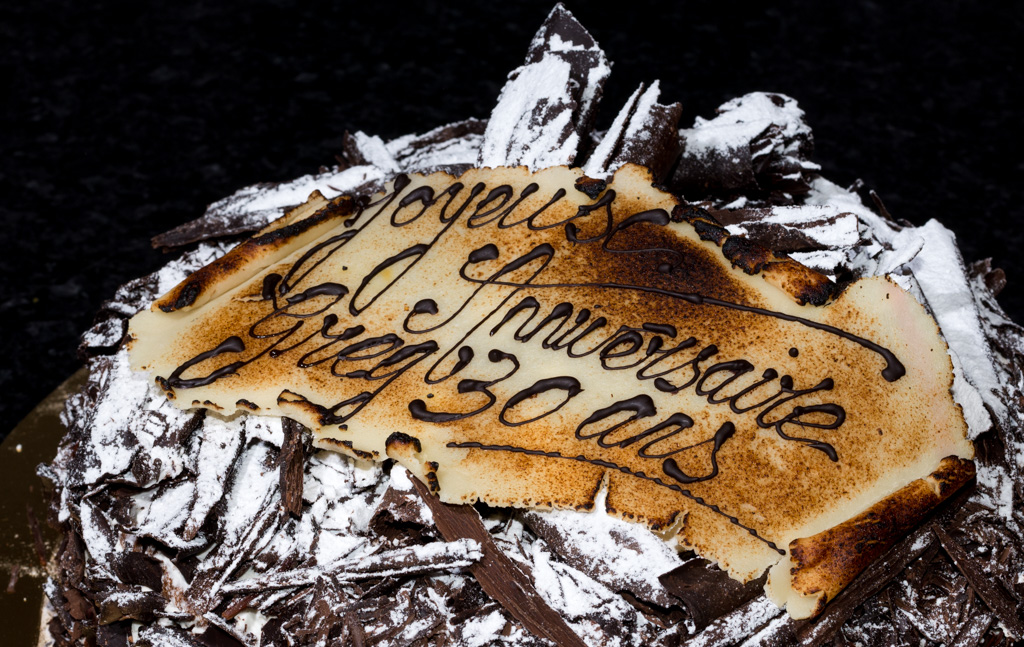 Joyeux
Anniversaire
Greg 30 ans